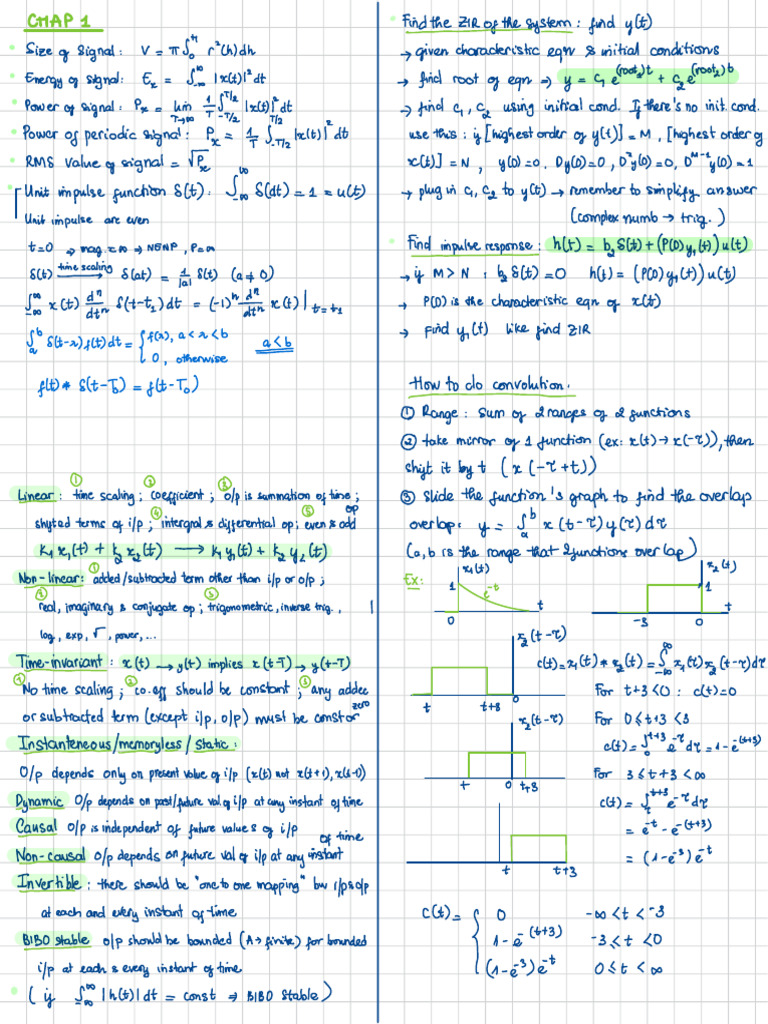 CHAP 1
Size of Signal: V = π∫₀ʰ r²(h)dh
Energy of signal: Eₓ = ∫_{-∞}^{∞} |x(t)|² dt
Power of signal: Pₓ = lim_{T→∞} 1/T ∫_{-T/2}^{T/2} |x(t)|² dt
Power of periodic signal: Pₓ = 1/T ∫_{-T/2}^{T/2} |x(t)|² dt
RMS value of signal = √Pₓ
Unit impulse function δ(t): ∫_{-∞}^{∞} δ(dt) = 1 = u(t)
Unit impulse are even
t=0 → mag. = ∞ → NENP, P=∞
δ(t) time scaling → δ(at) = 1/|a| δ(t) (a≠0)
∫_{-∞}^{∞} x(t) dⁿ/dtⁿ δ(t-t₁)dt = (-1)ⁿ dⁿ/dtⁿ x(t)|_{t=t₁}
∫ₐᵇ δ(t-x)f(t)dt = { f(x), a<x<b
0, otherwise
a<b
f(t)* δ(t-T₀) = f(t-T₀)
Linear: ① time scaling; ② coefficient; ③ o/p is summation of time;
shifted terms of i/p; ④ intergral & differential op; ⑤ even & odd op
k₁x₁(t) + k₂x₂(t) → k₁y₁(t) + k₂y₂(t)
Non-linear: ① added/subtracted term other than i/p or o/p;
② real, imaginary & conjugate op; ③ trigonometric, inverse trig.,
log, exp, √, power,...
Time-invariant: x(t) → y(t) implies x(t-T) → y(t-T)
① No time scaling; ② co.eff should be constant; ③ any added
or subtracted term (except i/p, o/p) must be constor zero
Instantaneous/memoryless/static:
O/p depends only on present value of i/p (x(t) not x(t+1), x(t-1))
Dynamic O/p depends on past/future val of i/p at any instant of time
Causal O/p is independent of future values of i/p
Non-causal o/p depends on future val of i/p at any instant of time
Invertible: there should be "one to one mapping" bw i/p & o/p
at each and every instant of time
BIBO stable o/p should be bounded (A→finite) for bounded
i/p at each & every instant of time
(if ∫_{-∞}^{∞} |h(t)|dt = const → BIBO stable)
Find the ZIR of the system: find y(t)
→ given characteristic eqn & initial conditions
→ find root of eqn ⇒ y = c₁e^{(root₁)t} + c₂e^{(root₂)t}
→ find c₁, c₂ using initial cond. If there's no init cond.
use this: if [highest order of y(t)] = M, [highest order of
x(t)] = N, y(0)=0, Dy(0)=0, D²y(0)=0, D^{M-1}y(0)=1
→ plug in c₁, c₂ to y(t) → remember to simplify answer
(complex numb → trig.)
Find impulse response: h(t) = b₂δ(t) + (P(D)y₁(t))u(t)
→ if M > N: b₂δ(t)=0 h(t) = (P(D)y₁(t))u(t)
→ P(D) is the characteristic eqn of x(t)
→ Find y₁(t) like find ZIR
How to do convolution.
① Range: Sum of 2 ranges of 2 functions
② take mirror of 1 function (ex: x(t)→x(-τ)), then
shift it by t (x(-τ+t))
③ Slide the function's graph to find the overlap
overlap: y = ∫ₐᵇ x(t-τ)y(τ)dτ
(a,b is the range that 2 functions overlap)
Ex: x₁(t) 1 e^{-t} t 0
x₂(t) 1 t -3 0
x₂(t-τ)
t t+3 0
x₂(t-τ)
t 0 t+3
t t+3
c(t)=x₁(t)*x₂(t)=∫_{-∞}^{∞} x₁(τ)x₂(t-τ)dτ
For t+3<0: c(t)=0
For 0≤t+3<3
c(t)=∫₀^{t+3} e^{-τ}dτ=1-e^{-(t+3)}
For 3≤t+3<∞
c(t)=∫ₜ^{t+3} e^{-τ}dτ
= e^{-t}-e^{-(t+3)}
= (1-e^{-3})e^{-t}
c(t)= { 0 -∞<t<-3
1-e^{-(t+3)} -3≤t<0
(1-e^{-3})e^{-t} 0≤t<∞